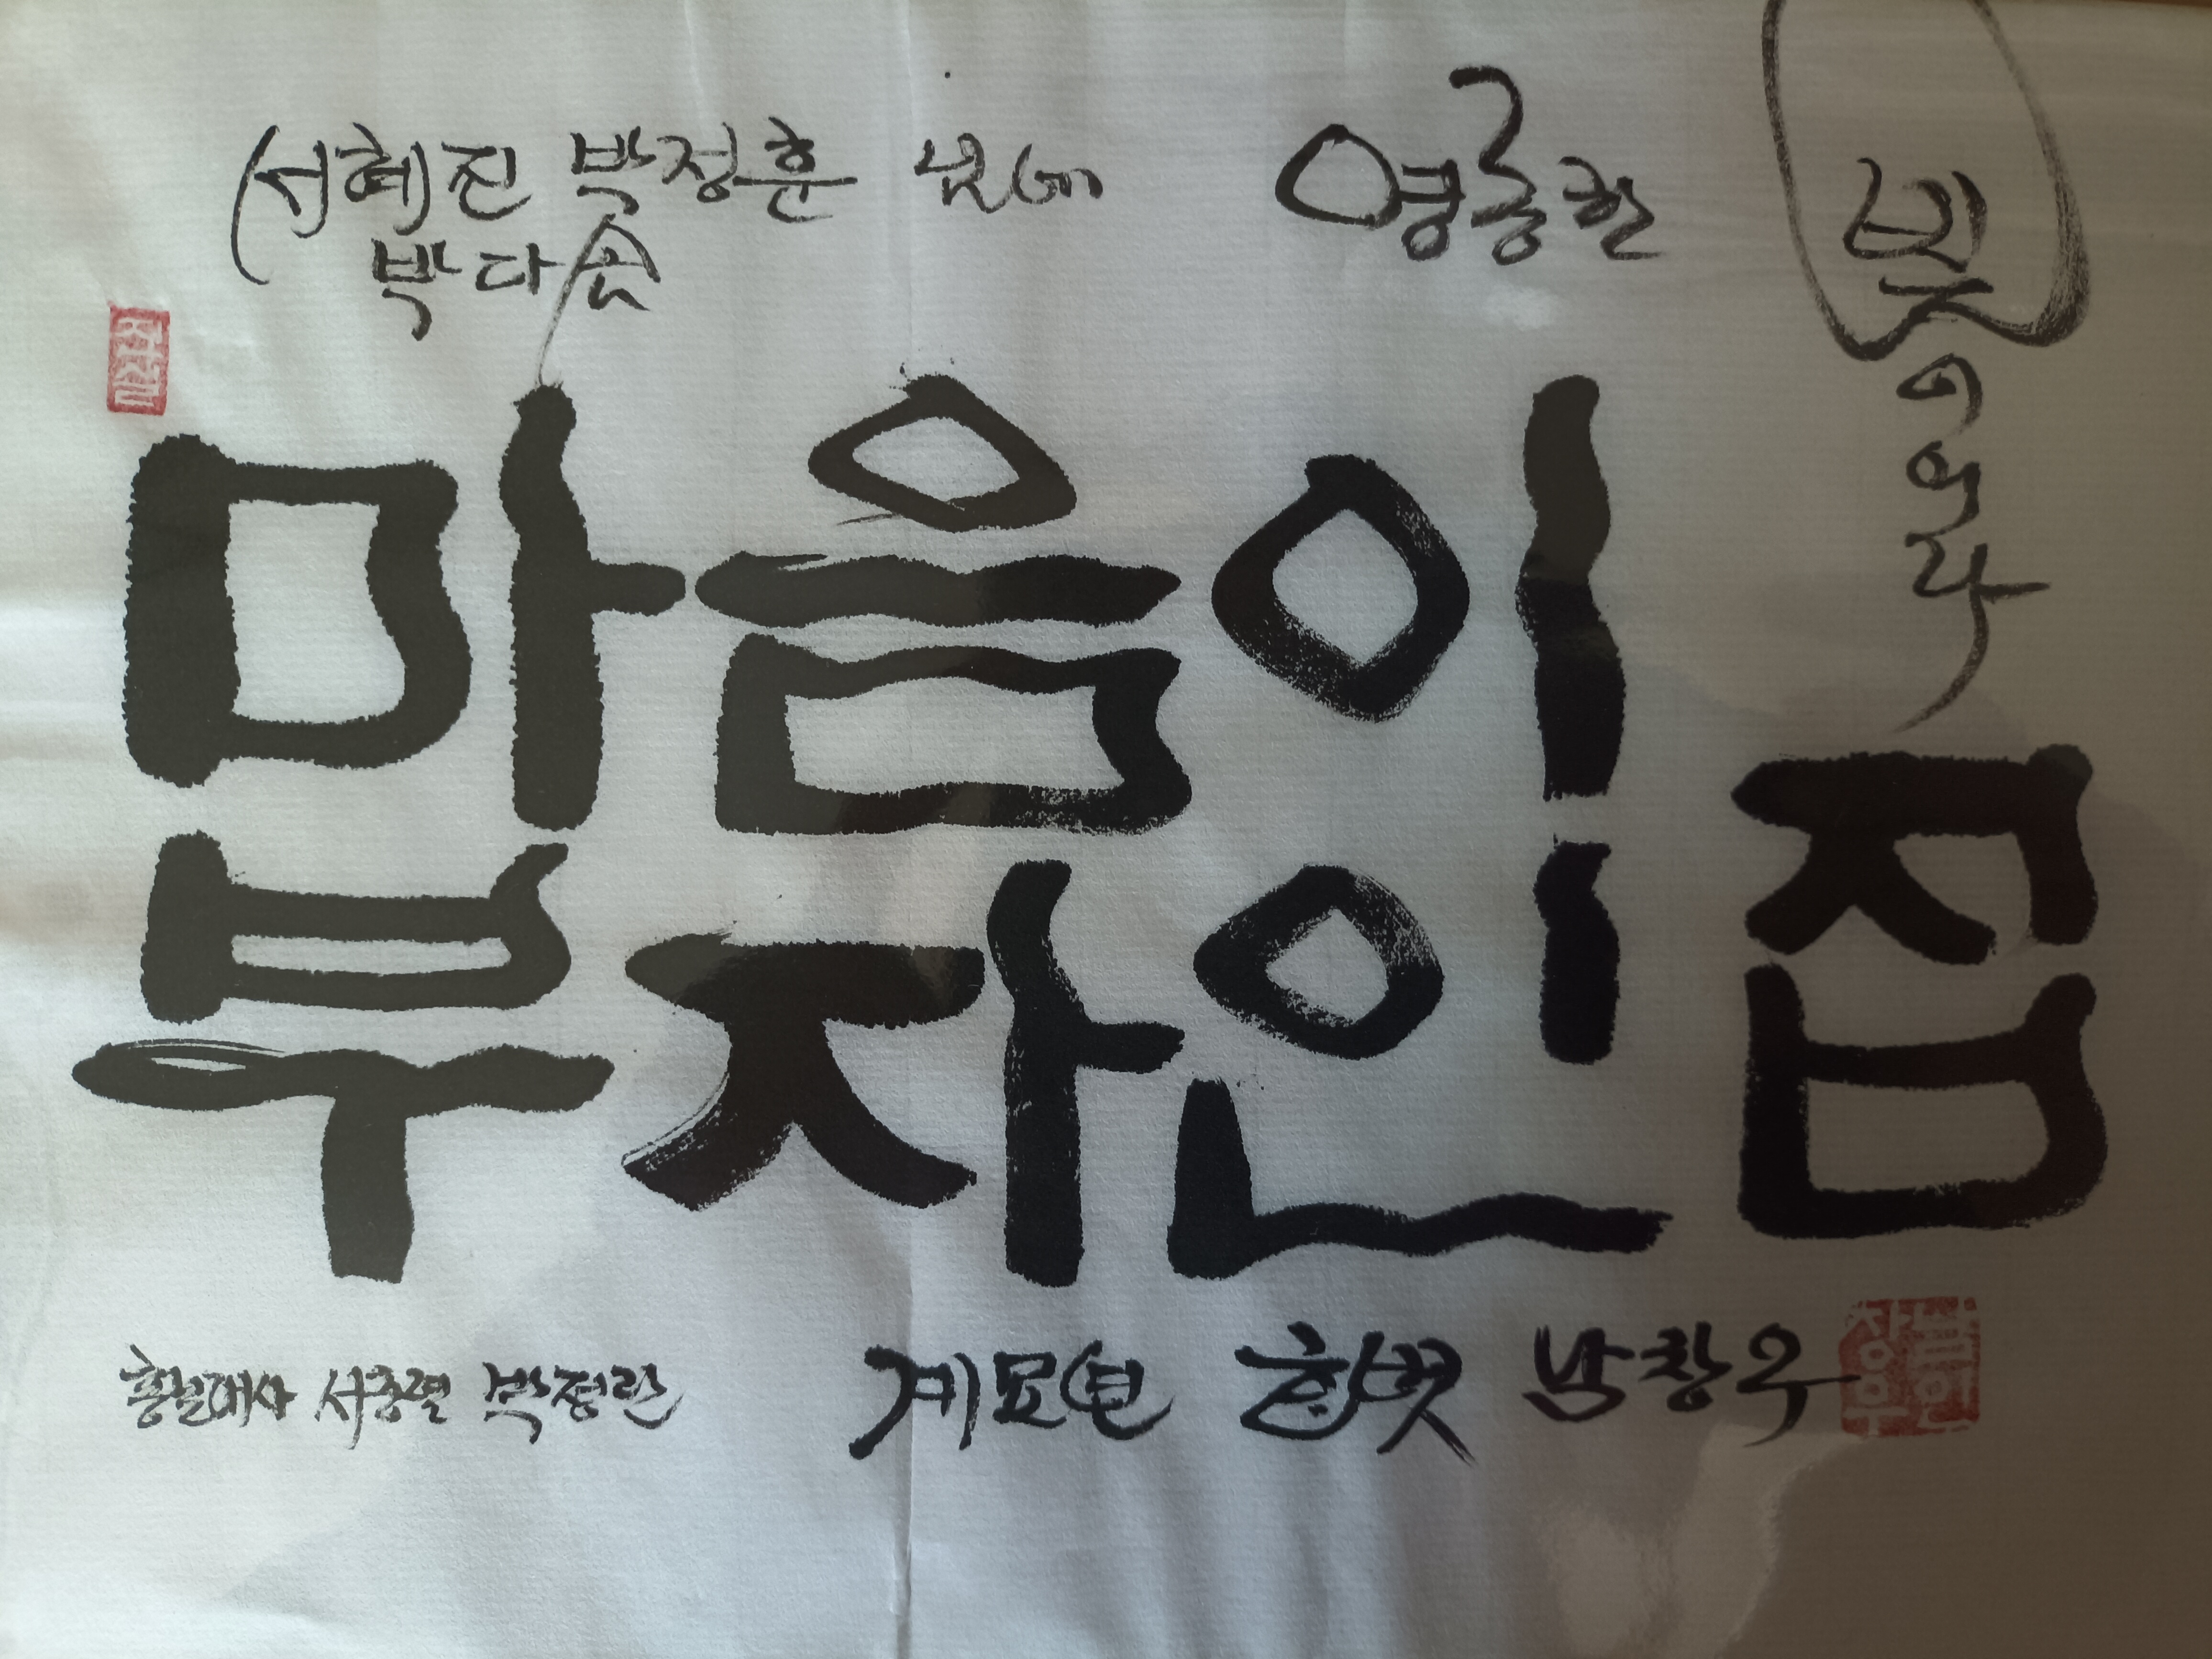 서혜진 박정훈 님께
박다솜
영롱한
빛이어라
마음이
부자인 집
홍보대사 서종렬 박정란
계묘년 한볏 남창우